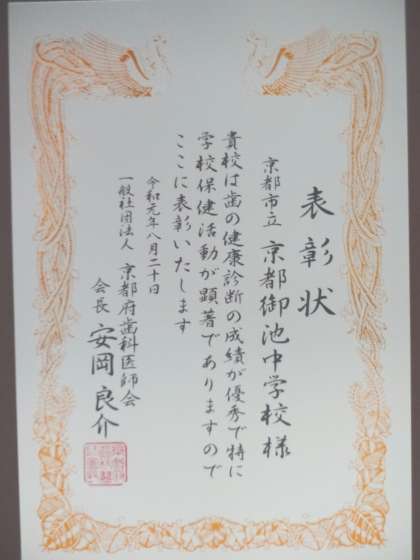 表彰状
京都市立 京都御池中学校様
貴校は歯の健康診断の成績が優秀で特に
学校保健活動が顕著でありますので
ここに表彰いたします
令和元年八月二十日
一般社団法人 京都府歯科医師会
会長 安岡良介